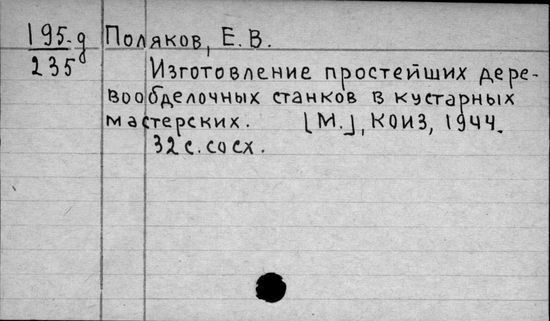 195-д Поляков, Е. В.
235
Изготовление простейших дере-
вообделочных станков в кустарных
мастерских. [М.], КОИЗ, 1944.
32 с. со сх.